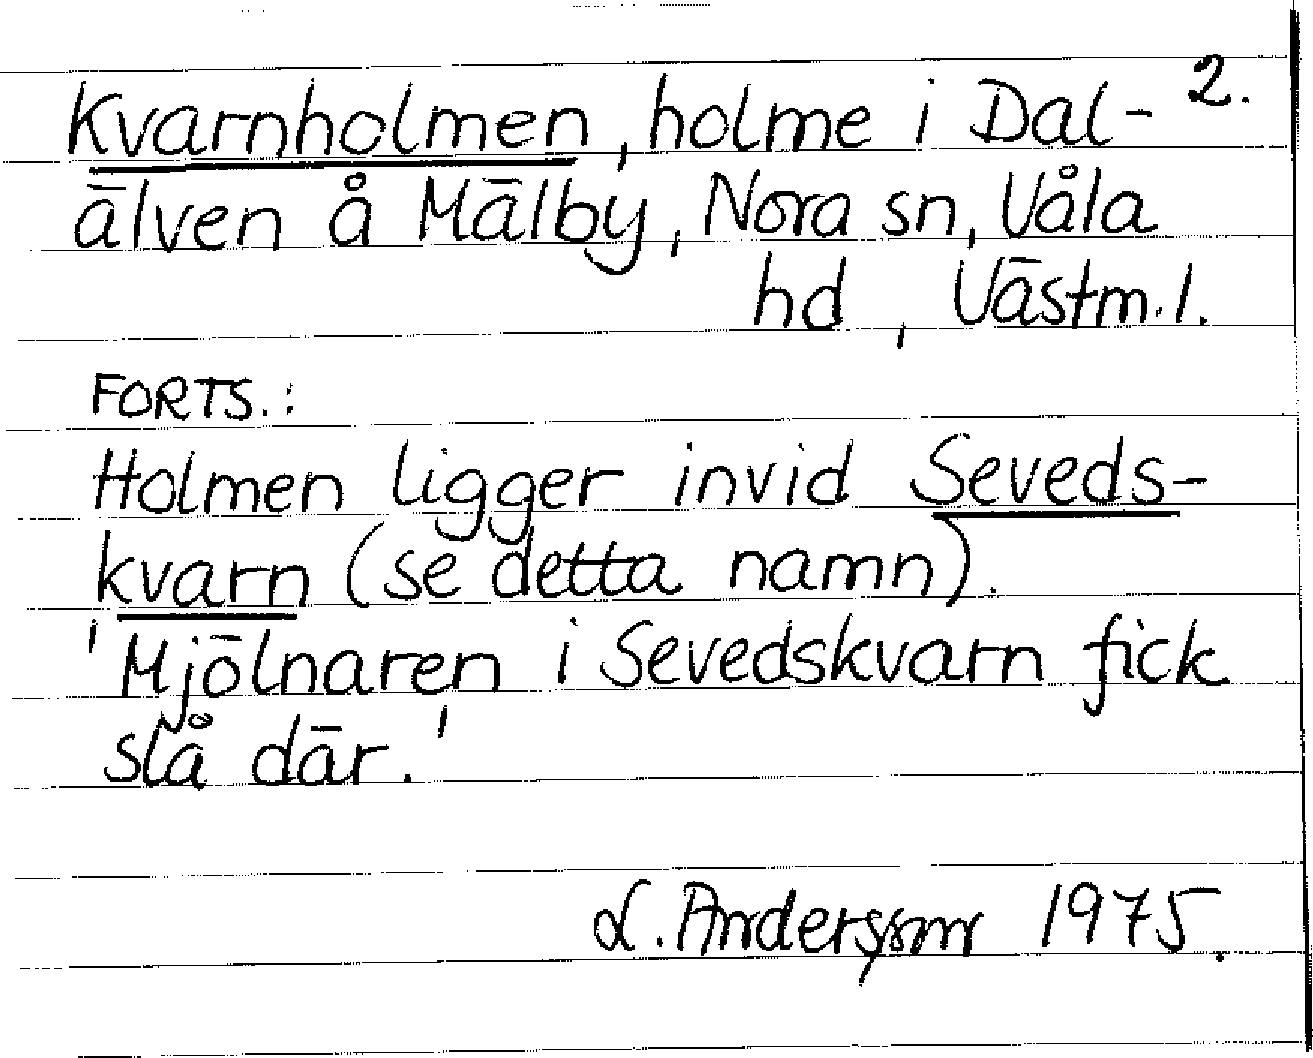 Kvarnholmen, holme i Dal- 2.
älven å Mälby, Nora sn, Våla
hd, Västm. l.
FORTS.:
Holmen ligger invid Seveds-
kvarn (se detta namn).
'Mjölnaren i Sevedskvarn fick
slå där.'
L. Andersson 1975.